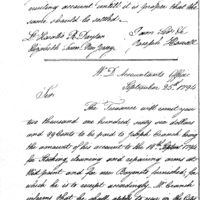 existing account untill it is proper that the
same should be settled.
I am &c &c
Joseph Howell
W. D. Accountants Office
September 25th 1794
Sir
The Treasurer will remit you
two thousand one hundred sixty one dollars
and cents to be paid to Joseph Branch being
the amount of his account to the 18th Septem 1794
for Stocking, cleaning and repairing arms at
West point and for new Bayonets furnished, for
which he is to receipt accordingly. Mr Branch
informs that he shall apply to you on the